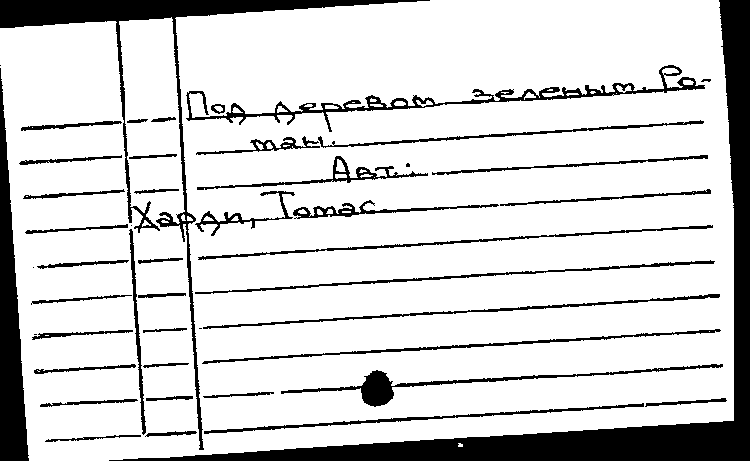 Под деревом зеленым. Ро-
ман.
Авт.:
Харди, Томас